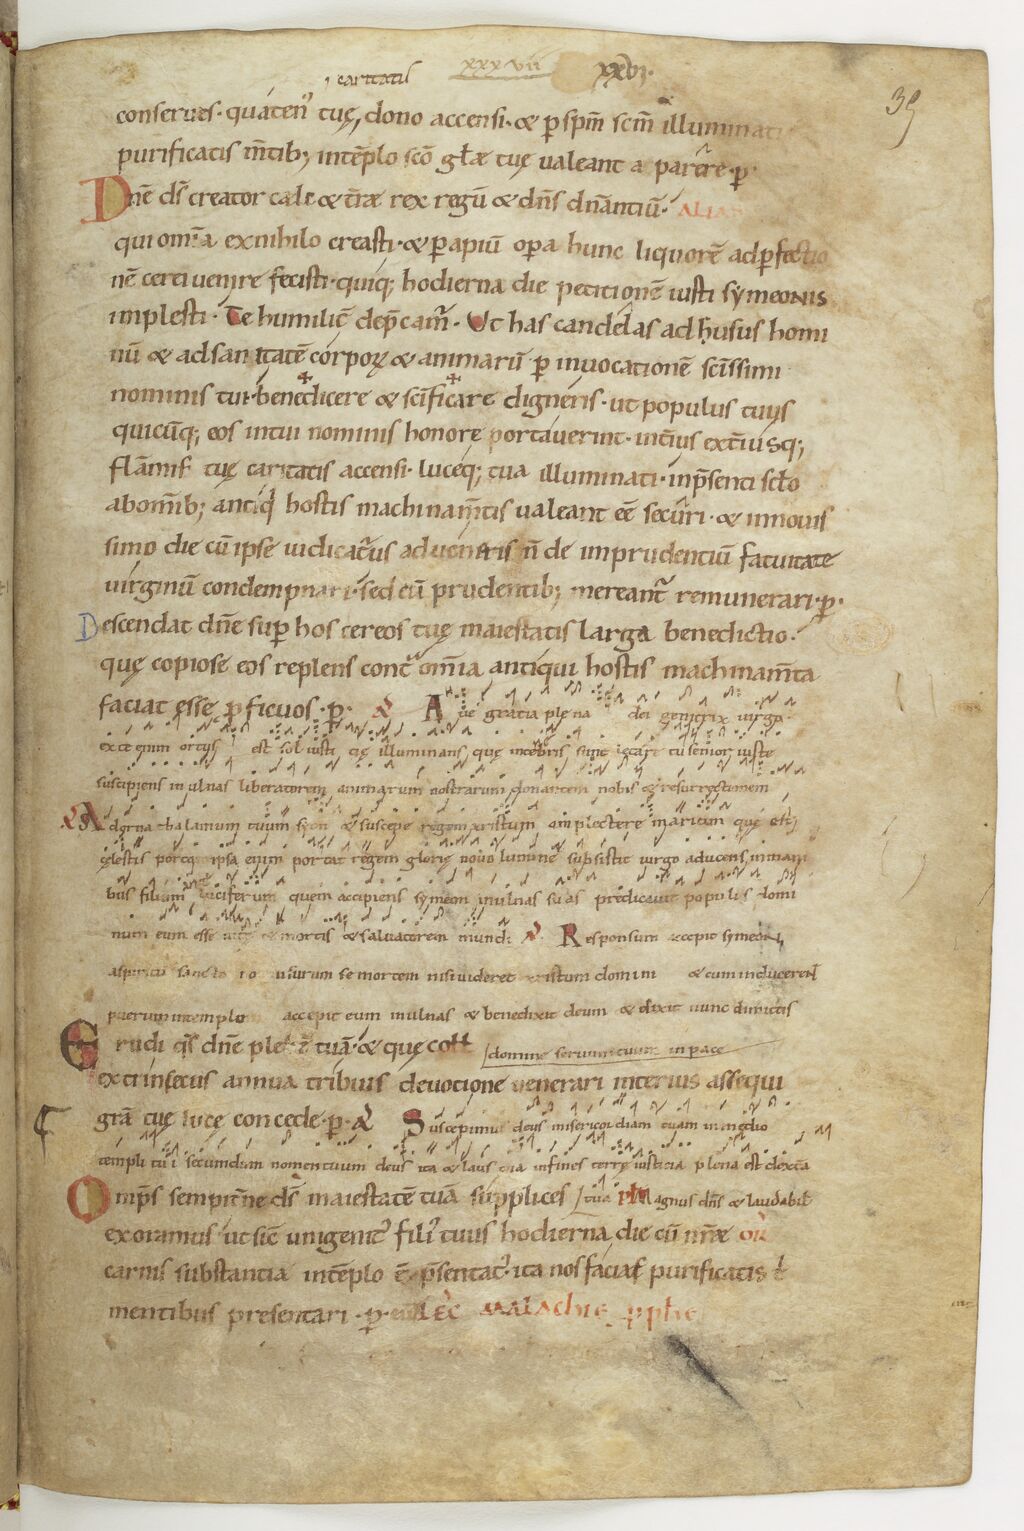 xxxvii xxxvi.
caritatis
39
conserues. quaten' tuę, dono accensi. & p spm̄ scm̄ illuminati
purificatis m̄tib; intēplo scō glæ tuę ualeant apparere. p.
Dn̄e ds̄ creator cæli & t̄ræ rex regū & dn̄s dn̄antiū. ALIA
qui om̄a exnihilo creasti. & p apiū opa hunc liquorē adpfectio
nē cerei uenire fecisti. quiq; hodierna die petitionē iusti symeonis
implesti. Te humilit̄ dep̄camr̄. Ut has candelas ad husus homi
nū & adsanitatē corporꝝ & animarū p inuocationē scīssimi
nominis tui. bene✝dicere & scīfi✝care digneris. ut populus tuus
quicūq; eos intui nominis honore portauerint. int̄ius ext̄iusq;
flāmis tuę caritatis accensi. luceq; tua illuminati. inp̄senti sclo
abom̄ib; antiqi hostis machinam̄tis ualeant eē securi. & innouis
simo die cū ipse iudicatur̄us adueneris n̄ de imprudentiū fatuitate
uirginū condempnari. sed cū prudentib; mereant̄ remunerari. p.
Descendat dn̄e sup hos cereos tuę maiestatis larga benedictio.
quę copiose eos replens cont̄ om̄ia antiqui hostis machinam̄ta
faciat esse pficuos. p. A Aue gratia plena dei genitrix uirgo.
exte enim ortus est sol iusticię illuminans quę intenebris sunt letare tu senior iuste
suscipiens inulnas liberatorem animarum nostrarum donantem nobis & resurrectionem
A Adorna thalamum tuum syon & suscipe regem xpistum amplectere mariam quę est
cęlestis porta ipsa enim portat regem glorię nouo lumine subsistit uirgo aducens inmani
bus filium luciferum quem accipiens symeon inulnas suas predicauit populis domi
num eum esse uitę & mortis & saluatorem mundi. R Responsum accepit symeon
aspiritu sancto no uisurum se mortem nisi uideret xpistum domini & cum inducerent
puerum intemplo accepit eum inulnas & benedixit deum & dixit nunc dimittis
Erudi qs̄ dn̄e plebē tuā. & quę cott domine seruum tuum inpace
extrinsecus annua tribuis deuotione uenerari interius assequi
grā tuę luce concede. p. A Suscepimus deus misericordiam tuam inmedio
templi tui secundum nomen tuum deus ita & laus tua infines terrę iusticia plena est dextera
Omps̄ sempit̄ne ds̄ maiestatē tuā supplices tua Magnus dn̄s & laudabił
exoramus ut sic̄ unigenit' fili' tuus hodierna die cū nræ OR
carnis substantia intēplo ē p̄sentat'. ita nos facias purificatis t
mentibus presentari. p. LEC MALACHIE pphe